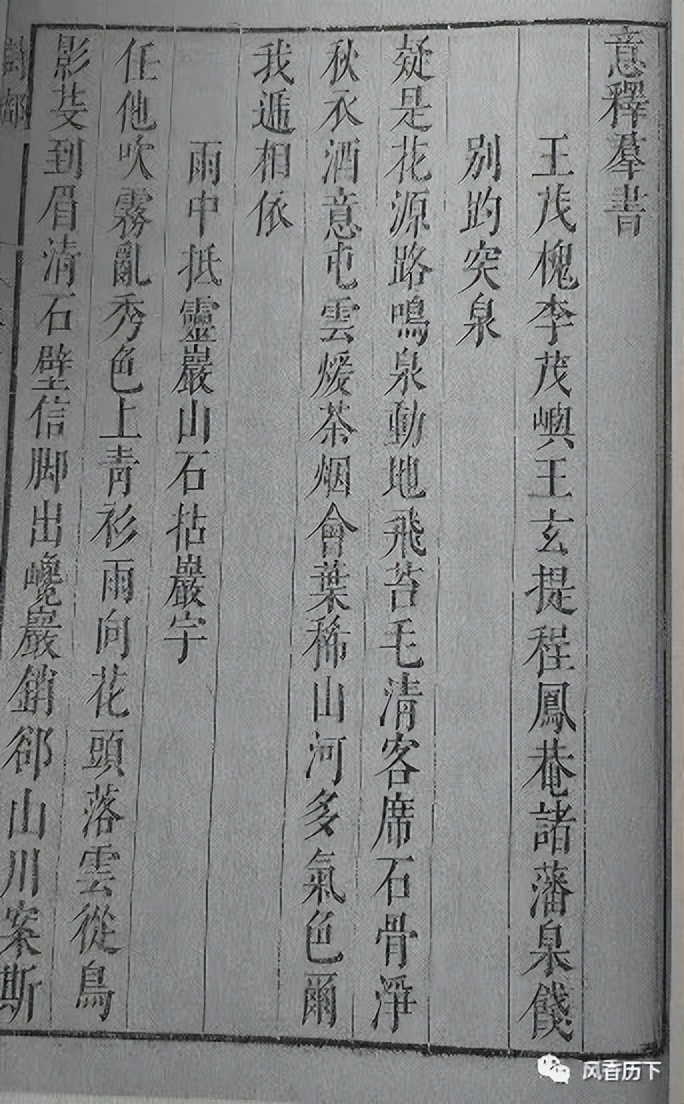 意釋羣書
王茂槐李茂嶼王玄提程鳳菴諸藩臬餞
別趵突泉
疑是花源路鳴泉動地飛苔毛清客席石骨淨
秋衣酒意屯雲煖茶烟會葉稀山河多氣色爾
我遞相依
雨中抵靈巖山石拈巖字
任他吹霧亂秀色上青衫雨向花頭落雲從鳥
影芟到眉清石壁信脚出巉巖銷郤山川案斯
风香历下